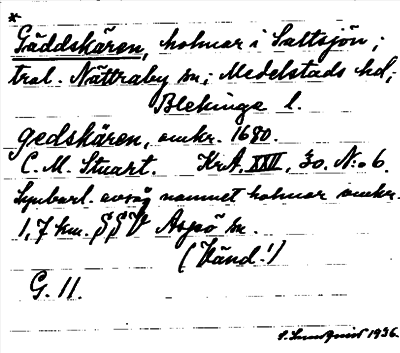 *
Gäddskären, holmar i Saltsjön;
tral. Nättraby sn; Medelstads hd;
Blekinge l.
gedskären, omkr. 1680.
C. M. Stuart. KrA. XXII, 30. N:o 6.
Synbarl. avsåg namnet holmar omkr.
1,7 km. SSV Aspö sn.
(Vänd!)
G. 11.
S. Sundqvist 1936.